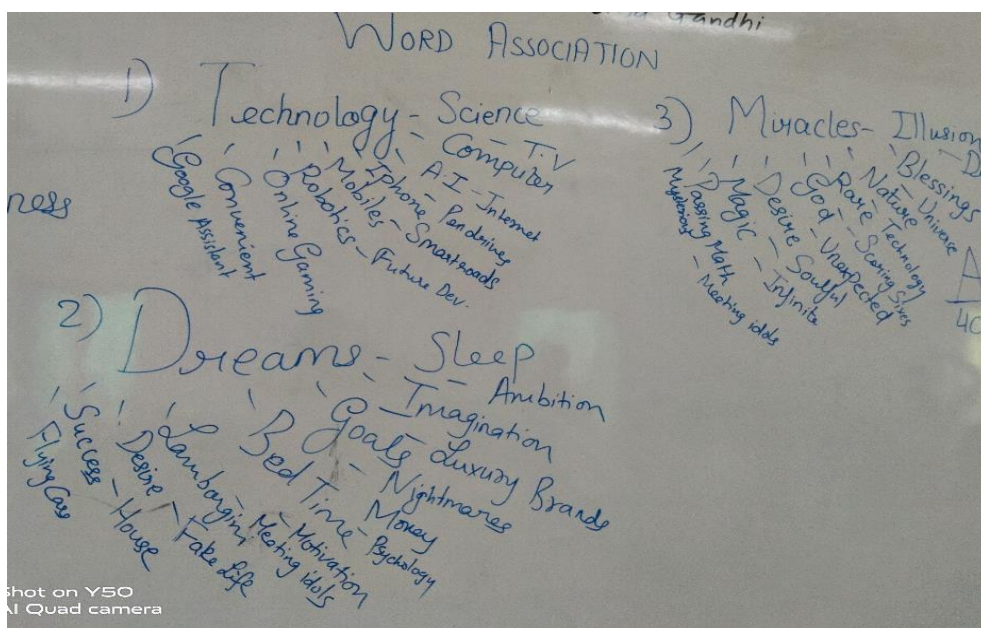 Gandhi
WORD ASSOCIATION
1) Technology - Science
- T.V
- Computer
- A.I - Internet
- Iphone - Pendrives
- Mobiles - Smartroads
- Robotics - Future Dev.
- Online Gaming
- Convenient
- Google Assistant
ness
2) Dreams - Sleep
- Ambition
- Imagination
- Goals - Luxury Brands
- Nightmares
- Bed Time - Money
- Psychology
- Lamborgini - Motivation
- Meeting idols
- Desire - Fake Life
- Success - House
Flying Cars
3) Miracles - Illusion
- D
- Blessings
- Nature - Universe
- Rare - Technology
- God - Scoring Sixes
- Desire - Unexpected
- Magic - Soulful
- Infinite
- Passing Math
- Meeting idols
Mysterious
A
40
Shot on Y50
AI Quad camera